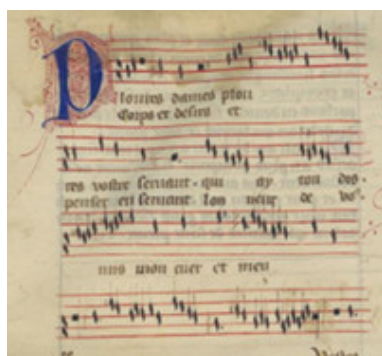 Ploures dames plou
Corps et desirs et
res vostre servant. qui ay tou dis
penser en servant. lon neur de vo
mis mon cuer et men